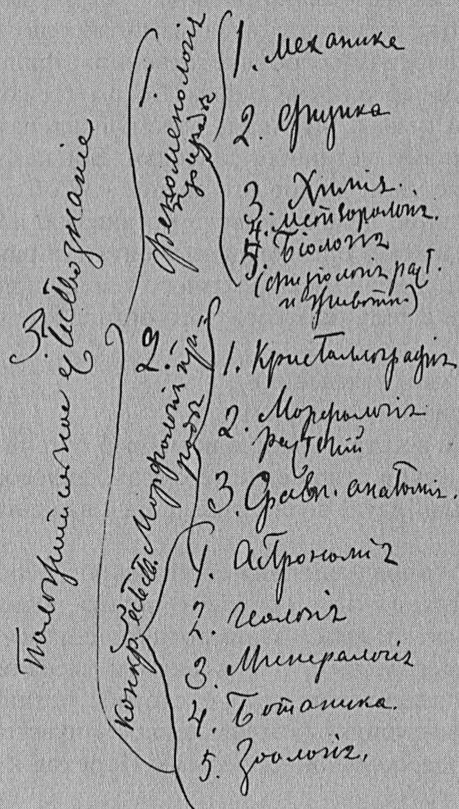 Положительное естествознание
1. Феноменологія
природы
1. Механика
2. Физика
3. Химія.
4. Метеорологія.
5. Біологія
(физіологія раст.
и животн.)
2. Морфологія при-
роды
1. Кристалографія
2. Морфологія
растеній
3. Сравн. анатомія.
3. Конкр. естеств.
1. Астрономія
2. Геологія
3. Минералогія
4. Ботаника.
5. Зоологія.